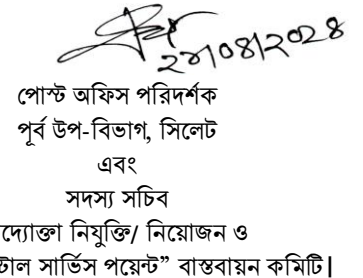 ২৮/০৪/২০২৪
পোস্ট অফিস পরিদর্শক
পূর্ব উপ-বিভাগ, সিলেট
এবং
সদস্য সচিব
দ্যোক্তা নিযুক্তি/ নিয়োজন ও
স্টাল সার্ভিস পয়েন্ট” বাস্তবায়ন কমিটি|